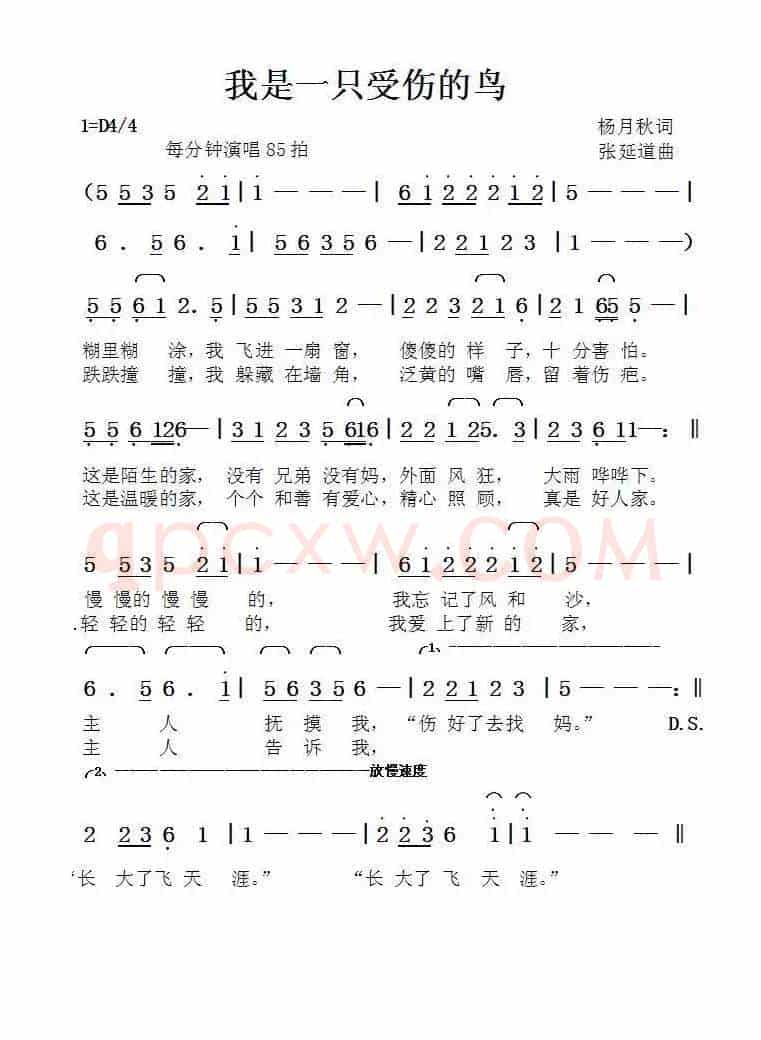 我是一只受伤的鸟
1=D4/4
杨月秋词
每分钟演唱85拍
张延道曲
(5 5 3 5 2 1|1 — — —| 6 1 2 2 2 1 2|5 — — —
6 . 5 6 . 1|5 6 3 5 6 —|2 2 1 2 3|1 — —)
5 5 6 1 2. 5|5 5 3 1 2 —|2 2 3 2 1 6|2 1 6 5 5 —|
糊里糊 涂,我 飞进 一扇 窗, 傻傻的 样 子,十 分害 怕。
跌跌撞 撞,我 躲藏 在墙 角, 泛黄的 嘴 唇,留 着伤 疤。
5 5 6 1 2 6—|3 1 2 3 5 6 1 6|2 2 1 2 5. 3|2 2 3 6 1 1—:‖
这是陌生的家, 没有 兄弟 没有妈,外面 风 狂, 大雨 哗哗下。
这是温暖的家, 个个 和善 有爱心,精心 照 顾, 真是 好人家。
qpcxw.COM
5 5 3 5 2 1|1 — — —|6 1 2 2 2 1 2|5 — — —|
慢 慢的 慢 慢 的, 我忘 记了风 和 沙,
.轻 轻的 轻 轻 的, 我爱 上了新 的 家,
1、
6 . 5 6 . 1|5 6 3 5 6 —|2 2 1 2 3|5 — — —:‖
主 人 抚 摸 我,“伤 好了去找 妈。” D.S.
主 人 告 诉 我,
2、放慢速度
2 2 3 6 1 1|— — — —|2 2 2 3 6 1|1 — — — ‖
‘长 大了飞 天 涯。” “长 大了 飞 天 涯。”